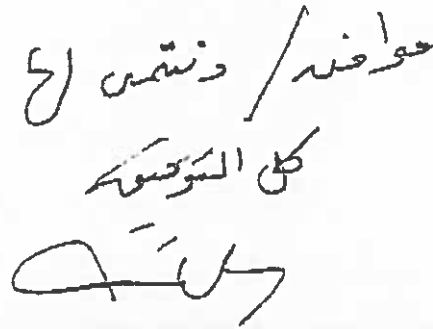 موافقه / ونتمنى لها
كل التوفيق